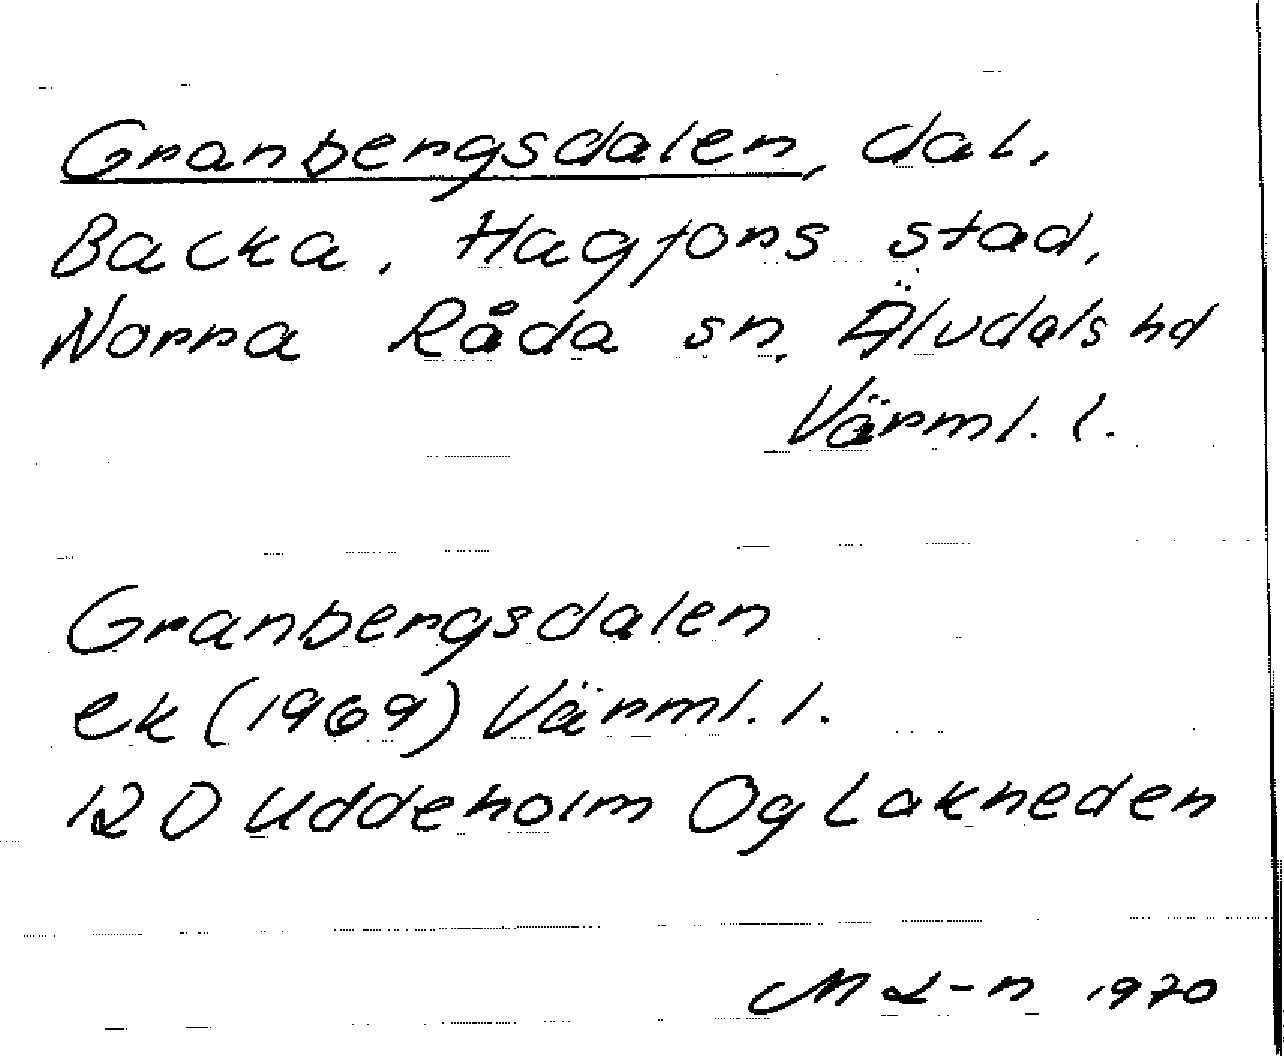 Granbergsdalen, dal,
Backa, Hagfors stad,
Norra Råda sn, Älvdals hd
Värml. l.
Granbergsdalen
ek (1969) Värml. l.
12D Uddeholm Og Lakheden
M L-n 1970